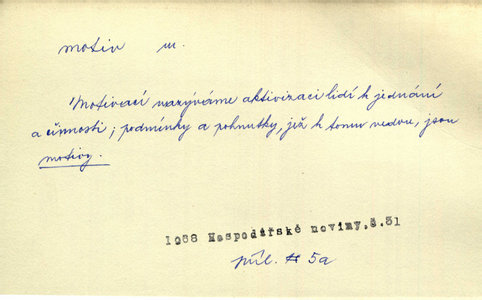 motiv m.
Motivací nazýváme aktivizaci lidí k jednání
a činnosti; podmínky a pohnutky, jež k tomu vedou, jsou
motivy.
1968 Hospodářské noviny, č. 31
příl. 5a